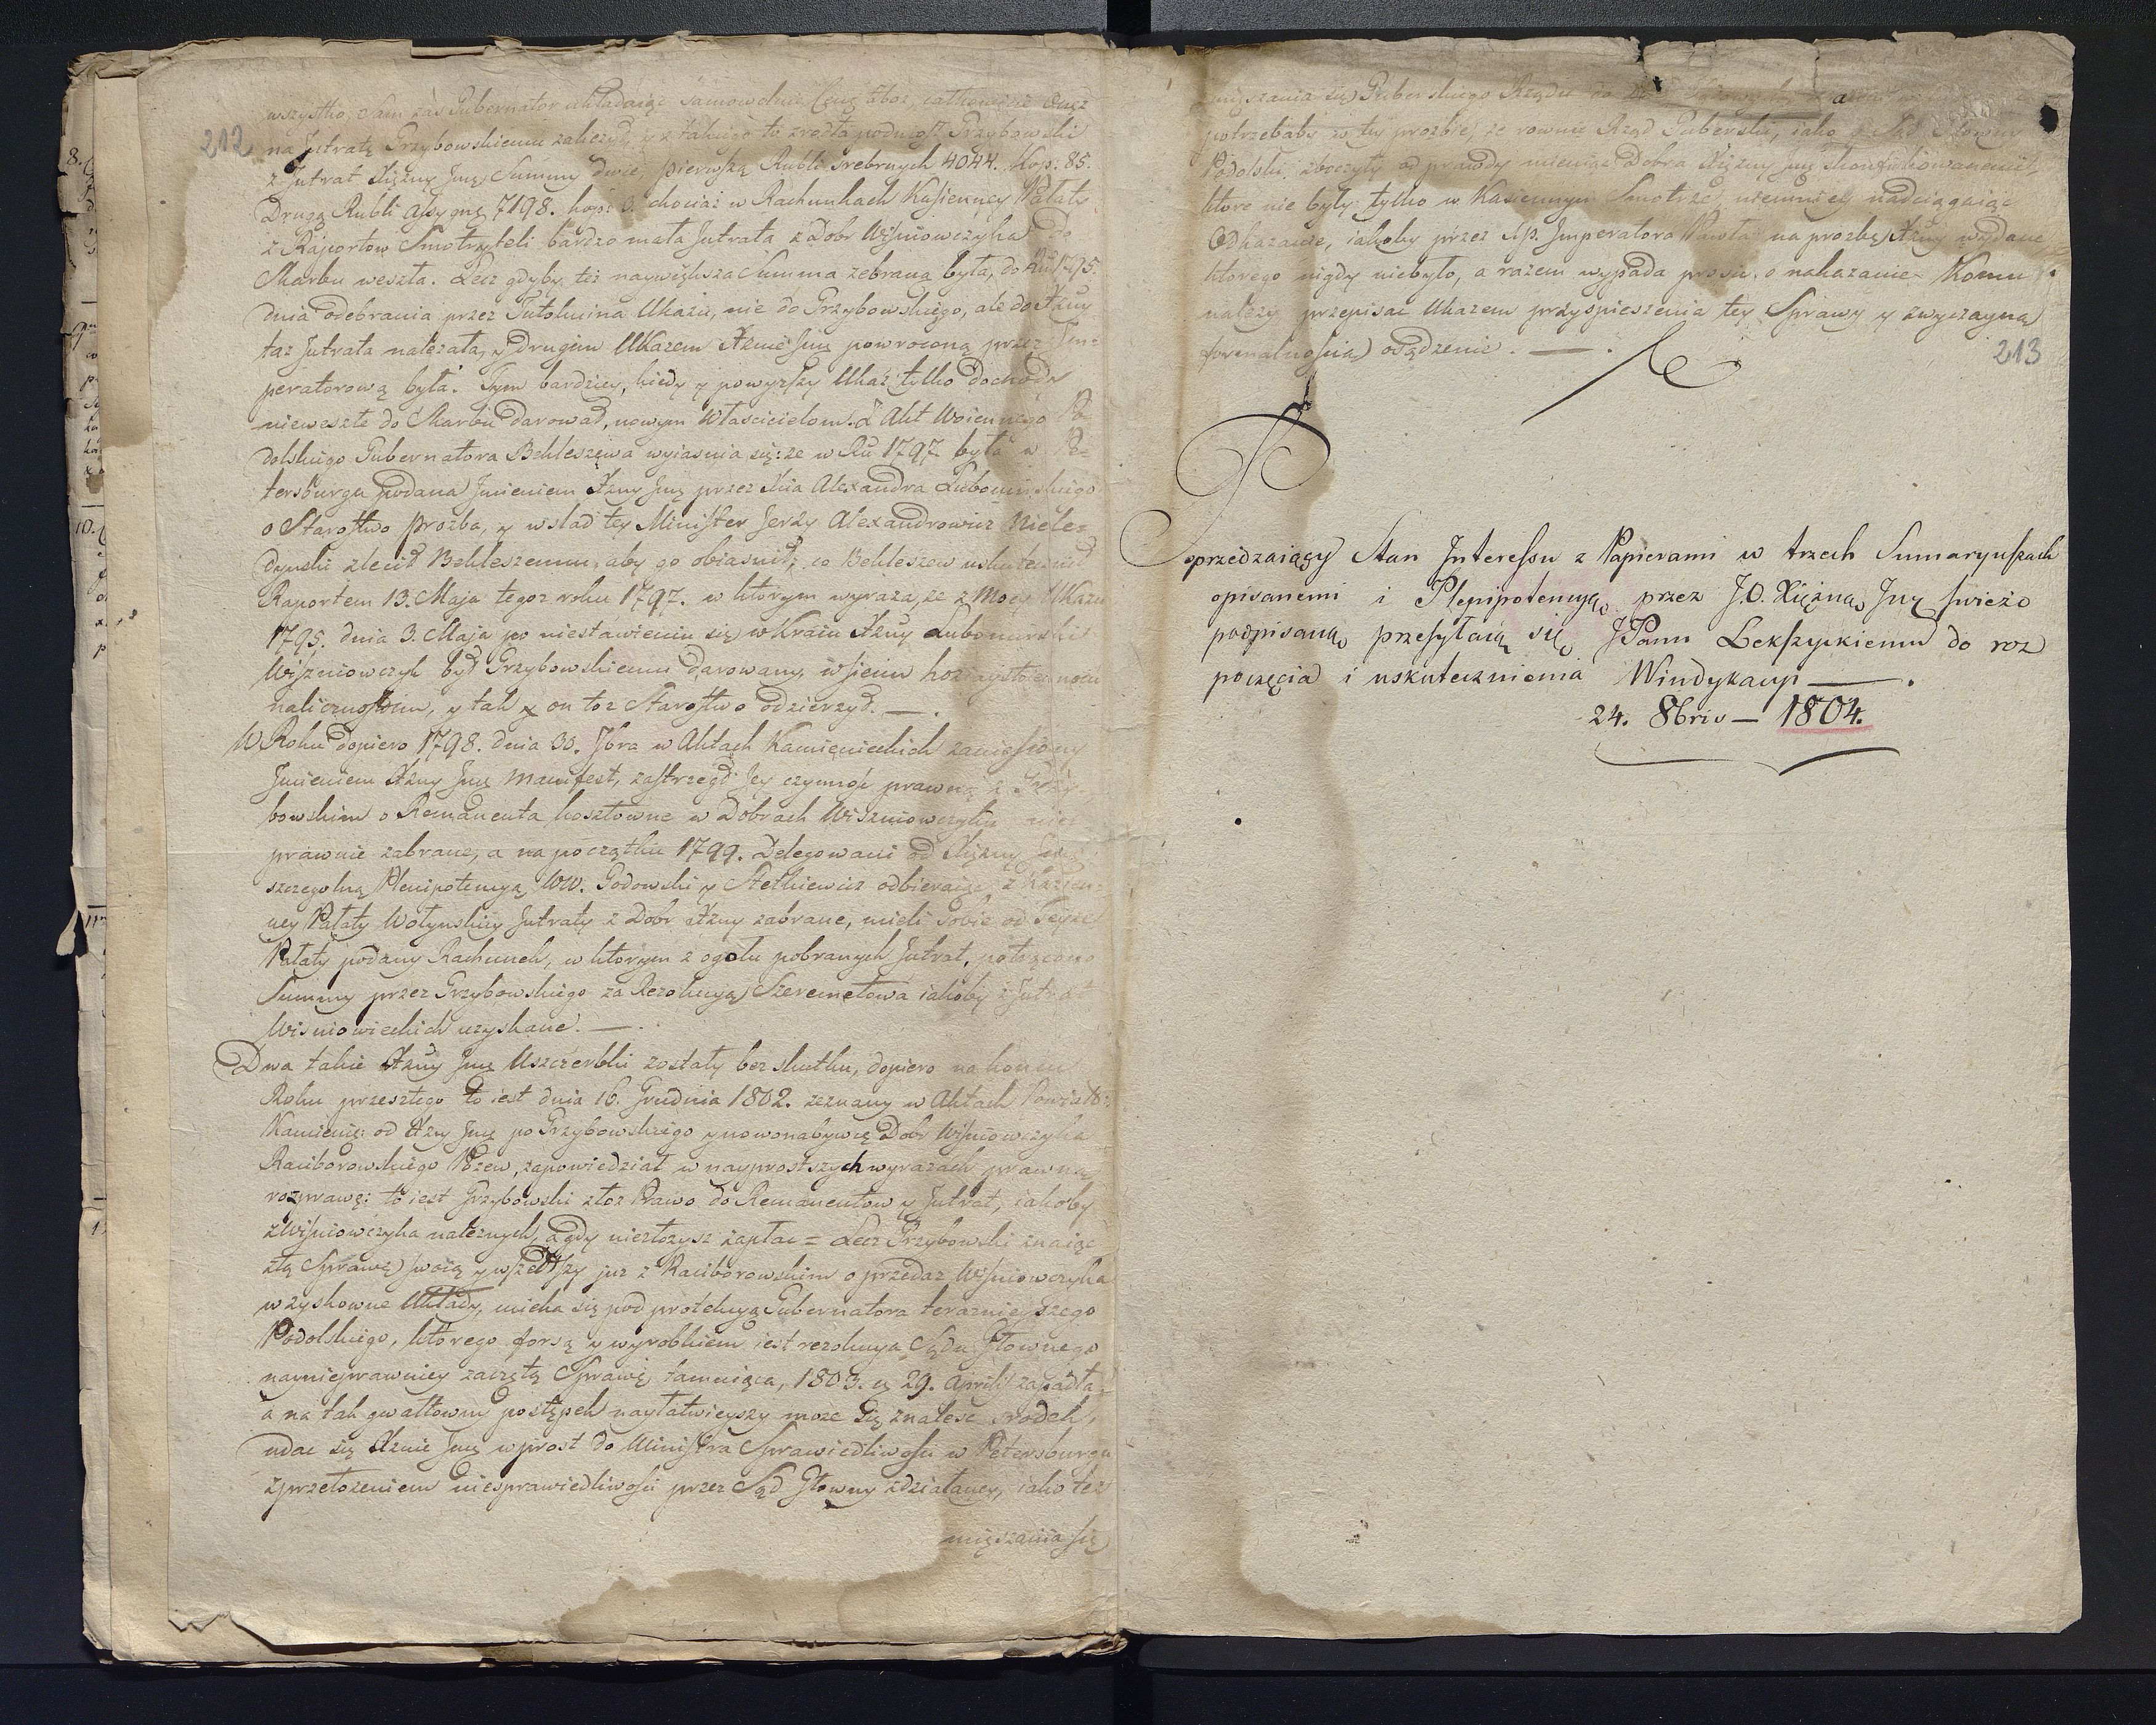 212
wszystko, sam zaś Gubernator układaiąc samowolnie Cenę zboż całkowicie onęż
na Jntratę Grzybowskiemu zaliczył, y z takiego to zrodła podniosł Grzybowski
z Jntrat Xiężny Jmę Summy dwie, pierwszą Rubli Srebrnych 4044. kop: 85.
Drugą Rubli Assygną 7198. kop: 3. chociaż w Rachunkach Kasienney Pałaty
z Raportow Smotrzyteli bardzo mała Jntrata z Dobr Wiśniowczyka do
Skarbu weszła. Lecz gdyby też naywiększa Summa zebraną była, do Ru 1795.
dnia odebrania przez Tutolmina Ukazu, nie do Grzybowskiego, ale do Xżny
taż Jntrata należała, y drugim Ukazem Xżnie Jmę powroconą przez Jm=
peratorową była. Tym bardziey, kiedy y powyższy Ukaz tylko dochody
nieweszłe do Skarbu darował, nowym Właścicielom. Z Akt Woiennego Po=
dolskiego Gubernatora Bekleszewa wyiaśnia się: że w Ru 1797. była w Pe=
tersburgu podana Jmieniem Xżny Jmę przez Xcia Alexandra Lubomirskiego
o Starostwo proźba, y w ślad tey Minister Jerzy Alexandrowicz Niele=
dynski zlecił Bekleszewu, aby go obiasnił; co Bekleszew uskutecznił
Raportem 13. Maja tegoż roku 1797. w którym wyraża, że z Mocy Ukazu
1795. dnia 3. Maja po niestawieniu się w Kraiu Xżny Lubomirskiey
Wiszniowczyk był Grzybowskiemu darowany, w sieim hoziaystwennom
nalicznostiu, y tak y on toż Starostwo odzierżył. — .
W Roku dopiero 1798. dnia 30. 7bra w Aktach Kamienieckich zaniesiony
Jmieniem Xżny Jmę Manifest, zastrzegł Jey czynność prawną z Grzy=
bowskim o Remanenta kosztowne w Dobrach Wiszniowczyku nie=
prawnie zabrane, a na początku 1799. Delegowani od Xiężny Jmę
szczegolną Plenipotencyą WW. Godowski y Stetkiewicz odbieraiąc z Kazien=
ney Pałaty Wołynskiey Jntraty z Dobr Xżny zabrane, mieli sobie od teyże
Pałaty podany Rachunek, w ktorym z ogołu pobranych Jntrat, potrącono
Summy przez Grzybowskiego za Rezolucyą Szeremetowa iakoby z Jntrat
Wisniowieckich uzyskane. — .
Dwa takie Xżny Jmę Uszczerbki zostały bez skutku, dopiero na koncu
Roku przeszłego to iest dnia 16. Grudnia 1802. zeznany w Aktach Powiatt:
Kamienie: od Xżny Jmę po Grzybowskiego y nowonabywcę Dobr Wiśniowczyka
Raciborowskiego Pozew, zapowiedział w nayprostszych wyrazach prawną
rozprawę: to iest Grzybowski złoż Prawo do Remanentow y Jntrat, iakoby
z Wiśniowczyka należnych, a gdy niezłożysz zapłac = Lecz Grzybowski znaiąc
złą Sprawę swoią y wszedłszy już z Raciborowskim o przedaż Wiśniowczyka
w zyskowne Układy, ucieka się pod protekcyą Gubernatora teraznieyszego
Podolskiego, ktorego forsą y wyrobkiem iest rezolucya Sądu Głownego
nayniepraw­niey zaczętą Sprawę łamiąca, 1803. ę 29. Aprilis zapadła
a na tak gwałtowny postępek nayłatwieyszy może się znaleść środek,
udać się Xżnie Jmę wprost do Ministra Sprawiedliwości w Petersburgu
z przełożeniem niesprawiedliwości przez Sąd Głowny zdziałaney, iako też
mięszania się
mięszania się Guberskiego Rządu do
potrzebaby w tey proźbie, że rownie Rząd Guberski, iako y Sąd Głowny
Podolski, zboczyły od prawdy mieniąc Dobra Xiężny Jmę skonfiskowanemi,
ktore nie były tylko w Kasiennym Smotrze, niemniey nadciągaiąc
Odkazanie, iakoby przez śp. Jmperatora Pawła na proźbę Xżny wydane
ktorego nigdy niebyło, a razem wypada prosić o nakazanie Komu
należy przepisać Ukazem przyspieszenia tey Sprawy y zwyczayną
formalnością osądzenie. — .
213
Poprzedzaiący Stan Interessu z Papierami w trzech Summaryuszach
opisanemi i Plenipotencyą przez J.O. Xiężnę Jmę swieżo
podpisaną przesyłaią się JPanu Lekszyckiemu do roz
poczęcia i uskutecznienia Windykacyi — .
24. 8bris — 1804.